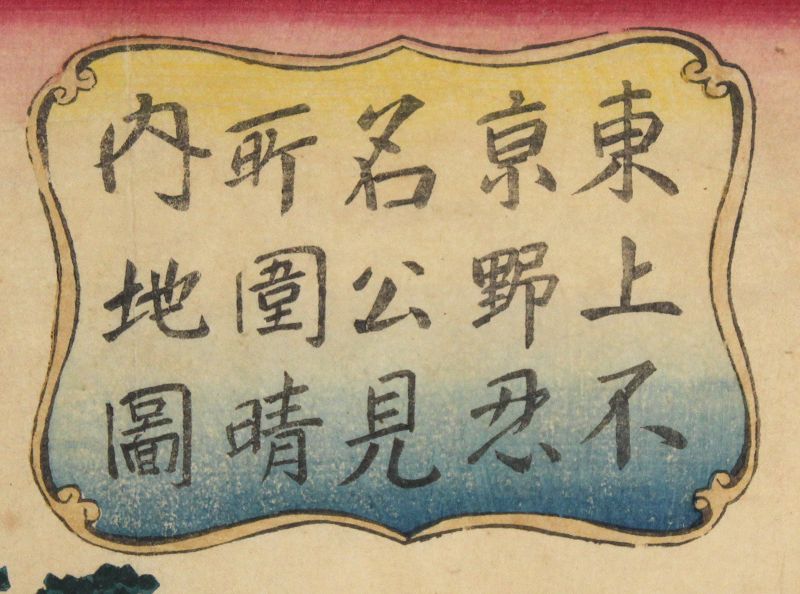 東亰名所内
上野公園地
不忍見晴圖